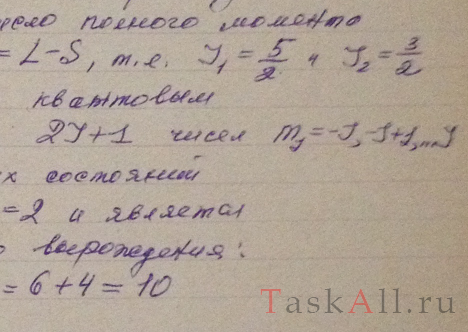 число полного момента
= L-S, т.е. J₁ = 5/2 и J₂ = 3/2
квантовым
2J+1 чисел m_J = -J, -J+1,..., J
состояний
=2 и является
вырождения:
= 6+4 = 10
TaskAll.ru